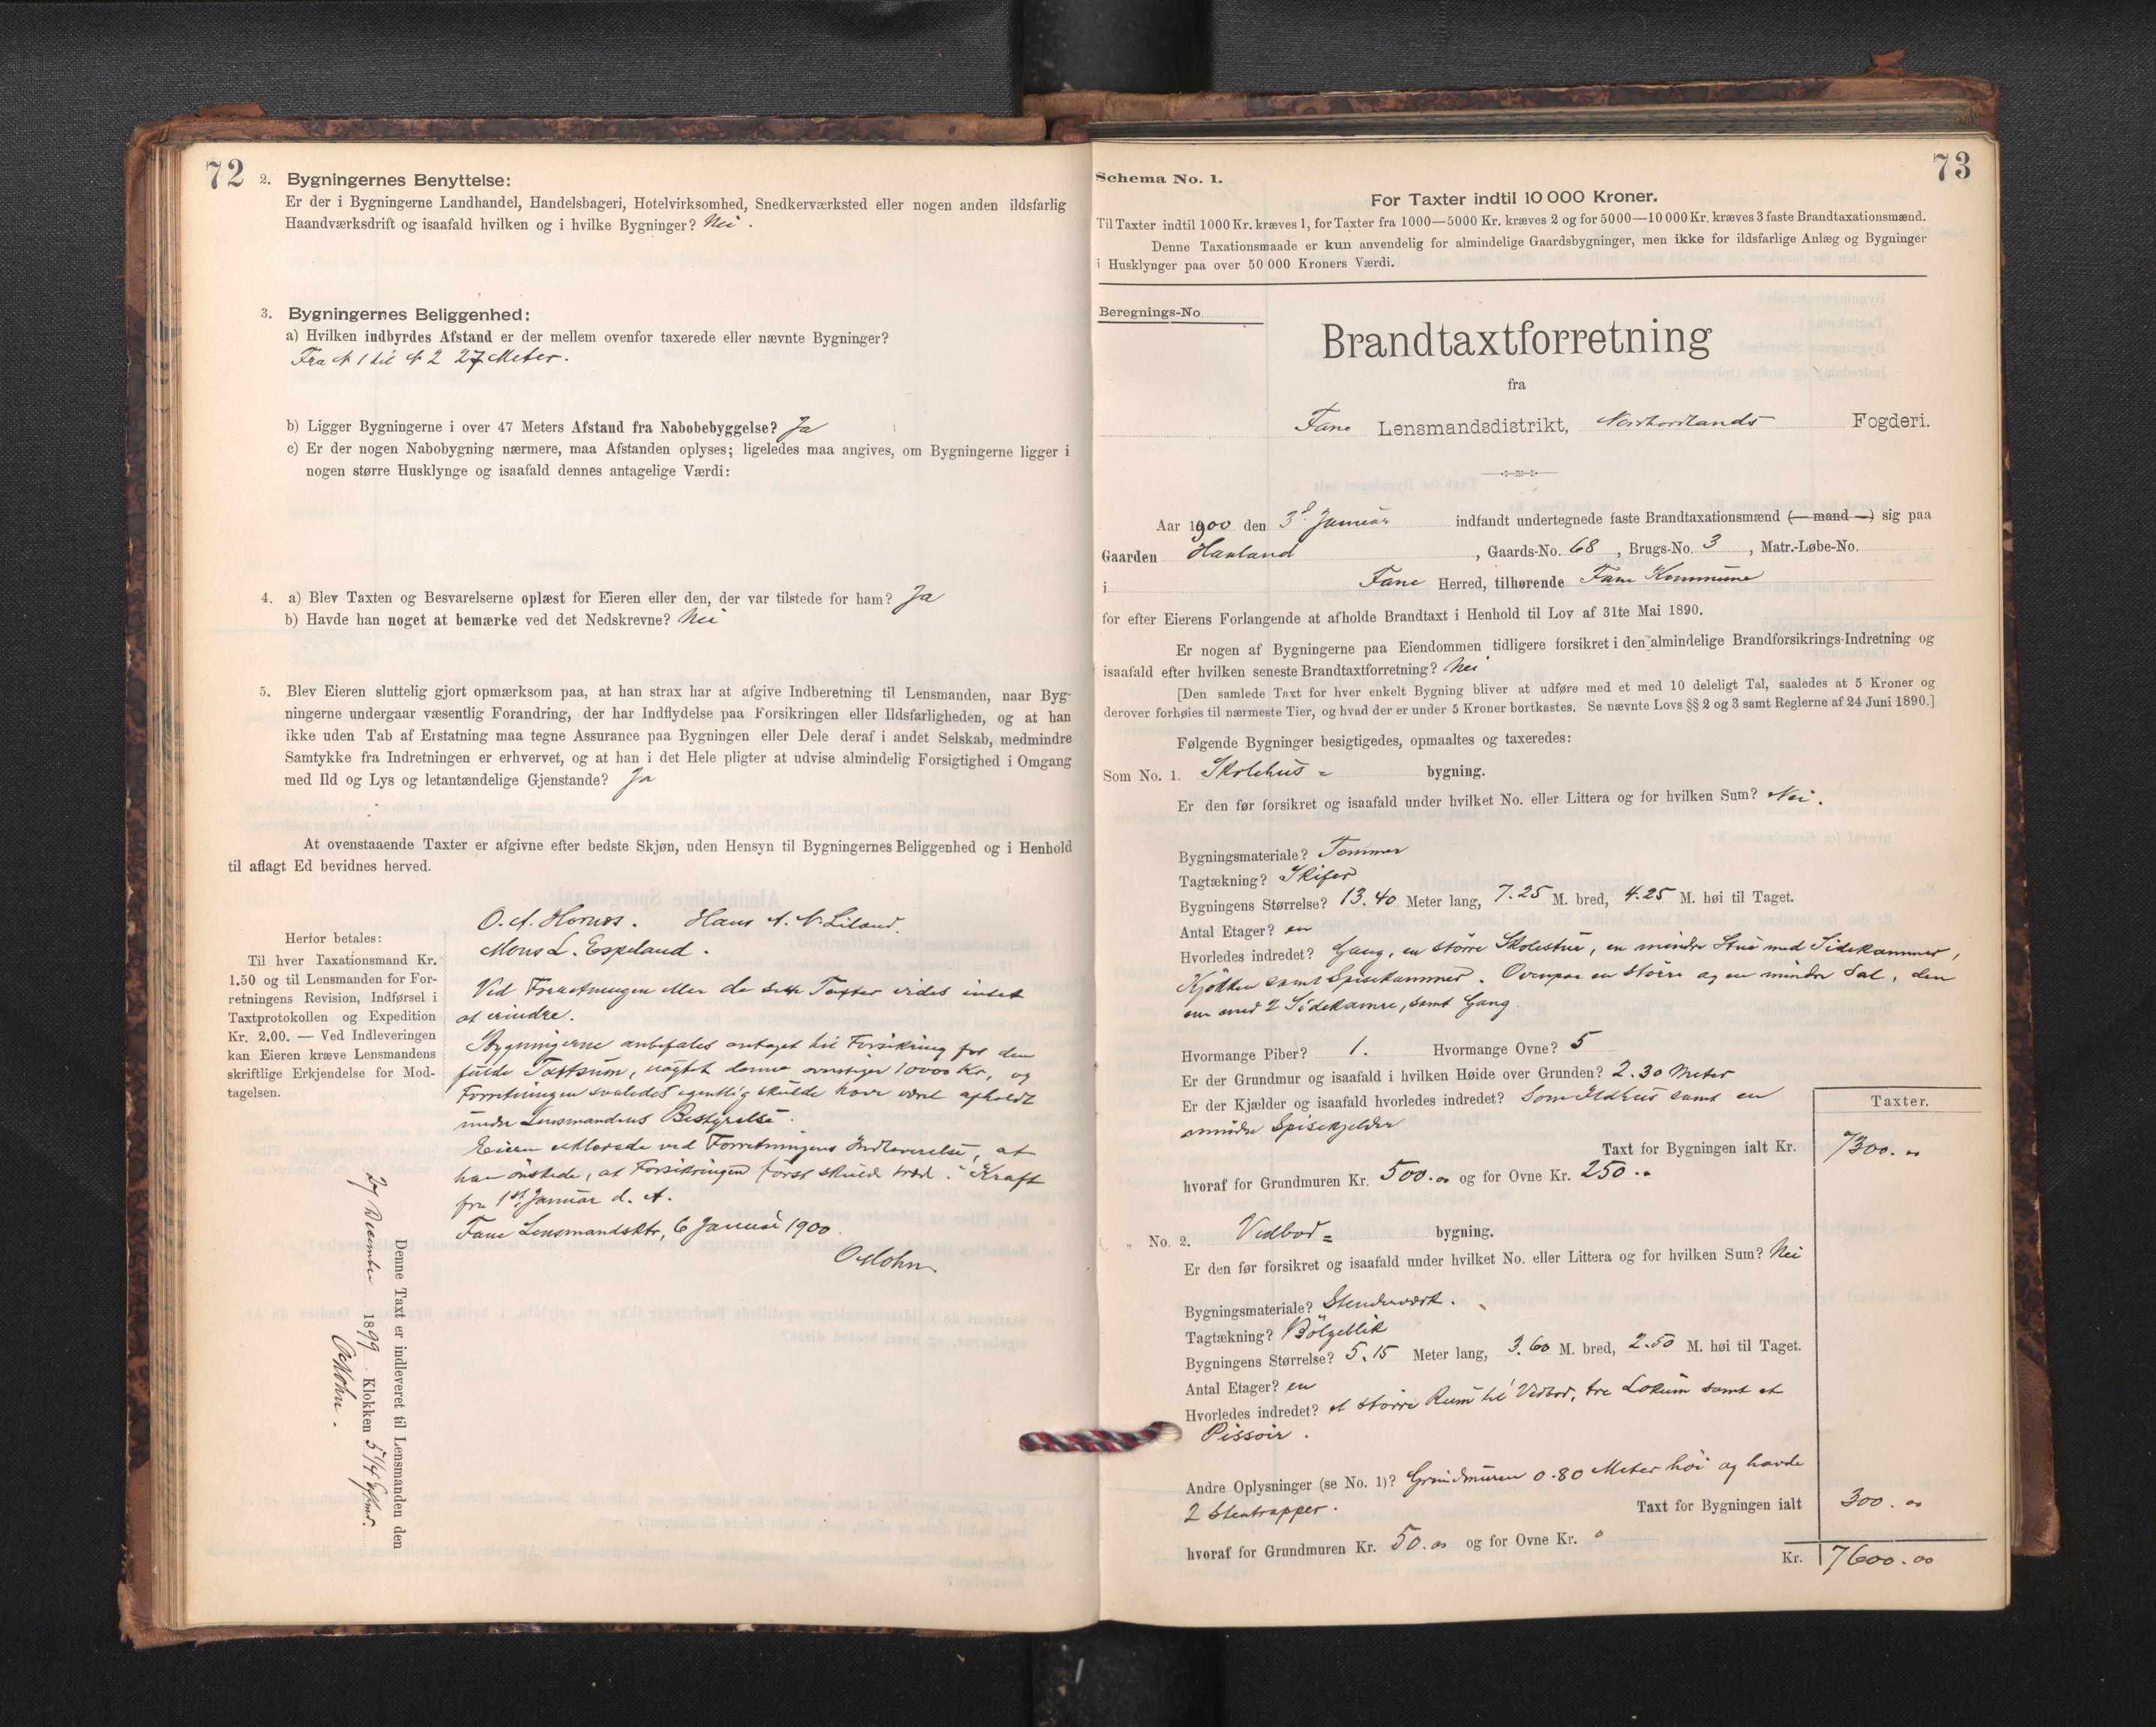 72
2. Bygningernes Benyttelse:
Er der i Bygningerne Landhandel, Handelsbageri, Hotelvirksomhed, Snedkerværksted eller nogen anden ildsfarlig
Haandværksdrift og isaafald hvilken og i hvilke Bygninger? Nei.
3. Bygningernes Beliggenhed:
a) Hvilken indbyrdes Afstand er der mellem ovenfor taxerede eller nævnte Bygninger?
Fra № 1 til № 2 27 Meter.
b) Ligger Bygningerne i over 47 Meters Afstand fra Nabobebyggelse? Ja
c) Er der nogen Nabobygning nærmere, maa Afstanden oplyses; ligeledes maa angives, om Bygningerne ligger i
nogen større Husklynge og isaafald dennes antagelige Værdi:
4. a) Blev Taxten og Besvarelserne oplæst for Eieren eller den, der var tilstede for ham? Ja
b) Havde han noget at bemærke ved det Nedskrevne? Nei
5. Blev Eieren sluttelig gjort opmærksom paa, at han strax har at afgive Indberetning til Lensmanden, naar Byg-
ningerne undergaar væsentlig Forandring, der har Indflydelse paa Forsikringen eller Ildsfarligheden, og at han
ikke uden Tab af Erstatning maa tegne Assurance paa Bygningen eller Dele deraf i andet Selskab, medmindre
Samtykke fra Indretningen er erhvervet, og at han i det Hele pligter at udvise almindelig Forsigtighed i Omgang
med Ild og Lys og letantændelige Gjenstande? Ja
At ovenstaaende Taxter er afgivne efter bedste Skjøn, uden Hensyn til Bygningernes Beliggenhed og i Henhold
til aflagt Ed bevidnes herved.
O. A. Hornæs. Hans A. N. Liland.
Mons L. Espeland.
Herfor betales:
Til hver Taxationsmand Kr.
1.50 og til Lensmanden for For-
retningens Revision, Indførsel i
Taxtprotokollen og Expedition
Kr. 2.00. — Ved Indleveringen
kan Eieren kræve Lensmandens
skriftlige Erkjendelse for Mod-
tagelsen.
Ved Forretningen eller de satte Taxter vides intet
at erindre.
Bygningerne anbefales antaget til Forsikring for den
fulde Taxtsum, uagtet denne overstiger 10000 Kr, og
Forretningen saaledes egentlig skulde have været afholdt
under Lensmandens Bestyrelse.
Eieren erklærede ved Forretningens Indleverelse, at
han ønskede, at Forsikringen først skulde træde i Kraft
fra 1st Januar d. A.
Fane Lensmandsktr, 6 Januar 1900.
Denne Taxt er indleveret til Lensmanden den
27 December 1899 Klokken 5 1/4 Eftmd.
73
Schema No. 1.
For Taxter indtil 10 000 Kroner.
Til Taxter indtil 1000 Kr. kræves 1, for Taxter fra 1000—5000 Kr. kræves 2 og for 5000—10 000 Kr. kræves 3 faste Brandtaxationsmænd.
Denne Taxationsmaade er kun anvendelig for almindelige Gaardsbygninger, men ikke for ildsfarlige Anlæg og Bygninger
i Husklynger paa over 50 000 Kroners Værdi.
Beregnings-No
Brandtaxtforretning
fra
Fane Lensmandsdistrikt, Nordhordlands Fogderi.
Aar 1900 den 3d Januar indfandt undertegnede faste Brandtaxationsmænd (— mand —) sig paa
Gaarden Hauland, Gaards-No. 68, Brugs-No. 3, Matr.-Løbe-No.
i Fane Herred, tilhørende Fane Kommune
for efter Eierens Forlangende at afholde Brandtaxt i Henhold til Lov af 31te Mai 1890.
Er nogen af Bygningerne paa Eiendommen tidligere forsikret i den almindelige Brandforsikrings-Indretning og
isaafald efter hvilken seneste Brandtaxtforretning? Nei
[Den samlede Taxt for hver enkelt Bygning bliver at udføre med et med 10 deleligt Tal, saaledes at 5 Kroner og
derover forhøies til nærmeste Tier, og hvad der er under 5 Kroner bortkastes. Se nævnte Lovs §§ 2 og 3 samt Reglerne af 24 Juni 1890.]
Følgende Bygninger besigtigedes, opmaaltes og taxeredes:
Som No. 1. Skolehus = bygning.
Er den før forsikret og isaafald under hvilket No. eller Littera og for hvilken Sum? Nei.
Bygningsmateriale? Tømmer
Tagtækning? Skifer
Bygningens Størrelse? 13.40 Meter lang, 7.25 M. bred, 4.25 M. høi til Taget.
Antal Etager? en
Hvorledes indredet? Gang, en större Skolestue, en mindre Stue med Sidekammer,
Kjökken samt Spisekammer. Ovenpaa en större og en mindre Sal, den
ene med 2 Sidekamre, samt Gang
Hvormange Piber? 1. Hvormange Ovne? 5
Er der Grundmur og isaafald i hvilken Høide over Grunden? 2.30 Meter
Er der Kjælder og isaafald hvorledes indredet? Som Ildhus samt en
mindre Spisekjelder
Taxter.
Taxt for Bygningen ialt Kr. 7300.00
hvoraf for Grundmuren Kr. 500.00 og for Ovne Kr. 250.00
„ No. 2. Vedbod = bygning.
Er den før forsikret og isaafald under hvilket No. eller Littera og for hvilken Sum? Nei
Bygningsmateriale? Stenderverk.
Tagtækning? Bölgeblik
Bygningens Størrelse? 5.15 Meter lang, 3.60 M. bred, 2.50 M. høi til Taget.
Antal Etager? en
Hvorledes indredet? et större Rum til Vedbod, tre Lokum samt et
Pissoir.
Andre Oplysninger (se No. 1)? Grundmuren 0.80 Meter høi og havde
2 Stentrapper.
Taxt for Bygningen ialt 300.00
hvoraf for Grundmuren Kr. 50.00 og for Ovne Kr. 0
Kr. 7600.00